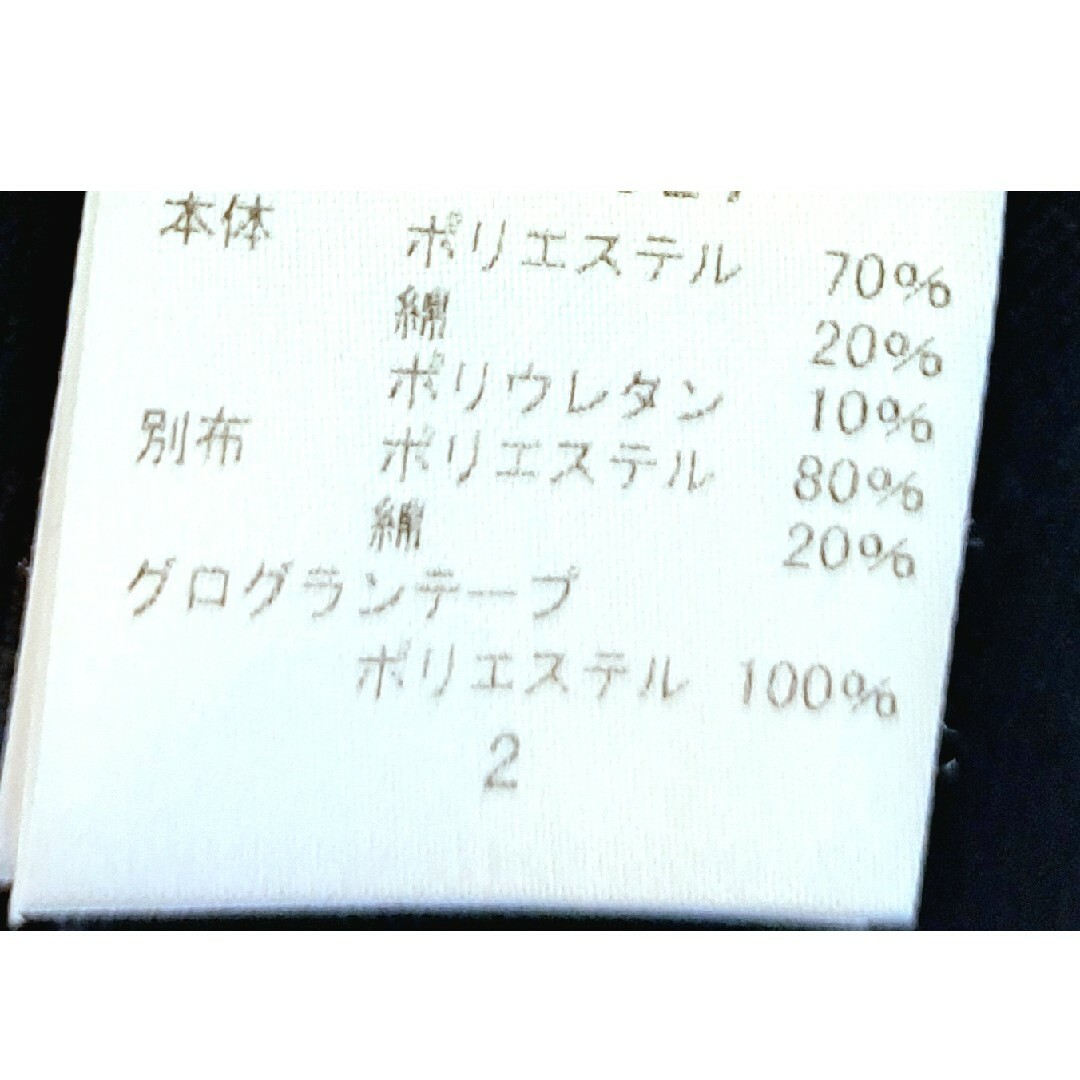 本体 ポリエステル 70%
綿 20%
ポリウレタン 10%
別布 ポリエステル 80%
綿 20%
グログランテープ
ポリエステル 100%
2